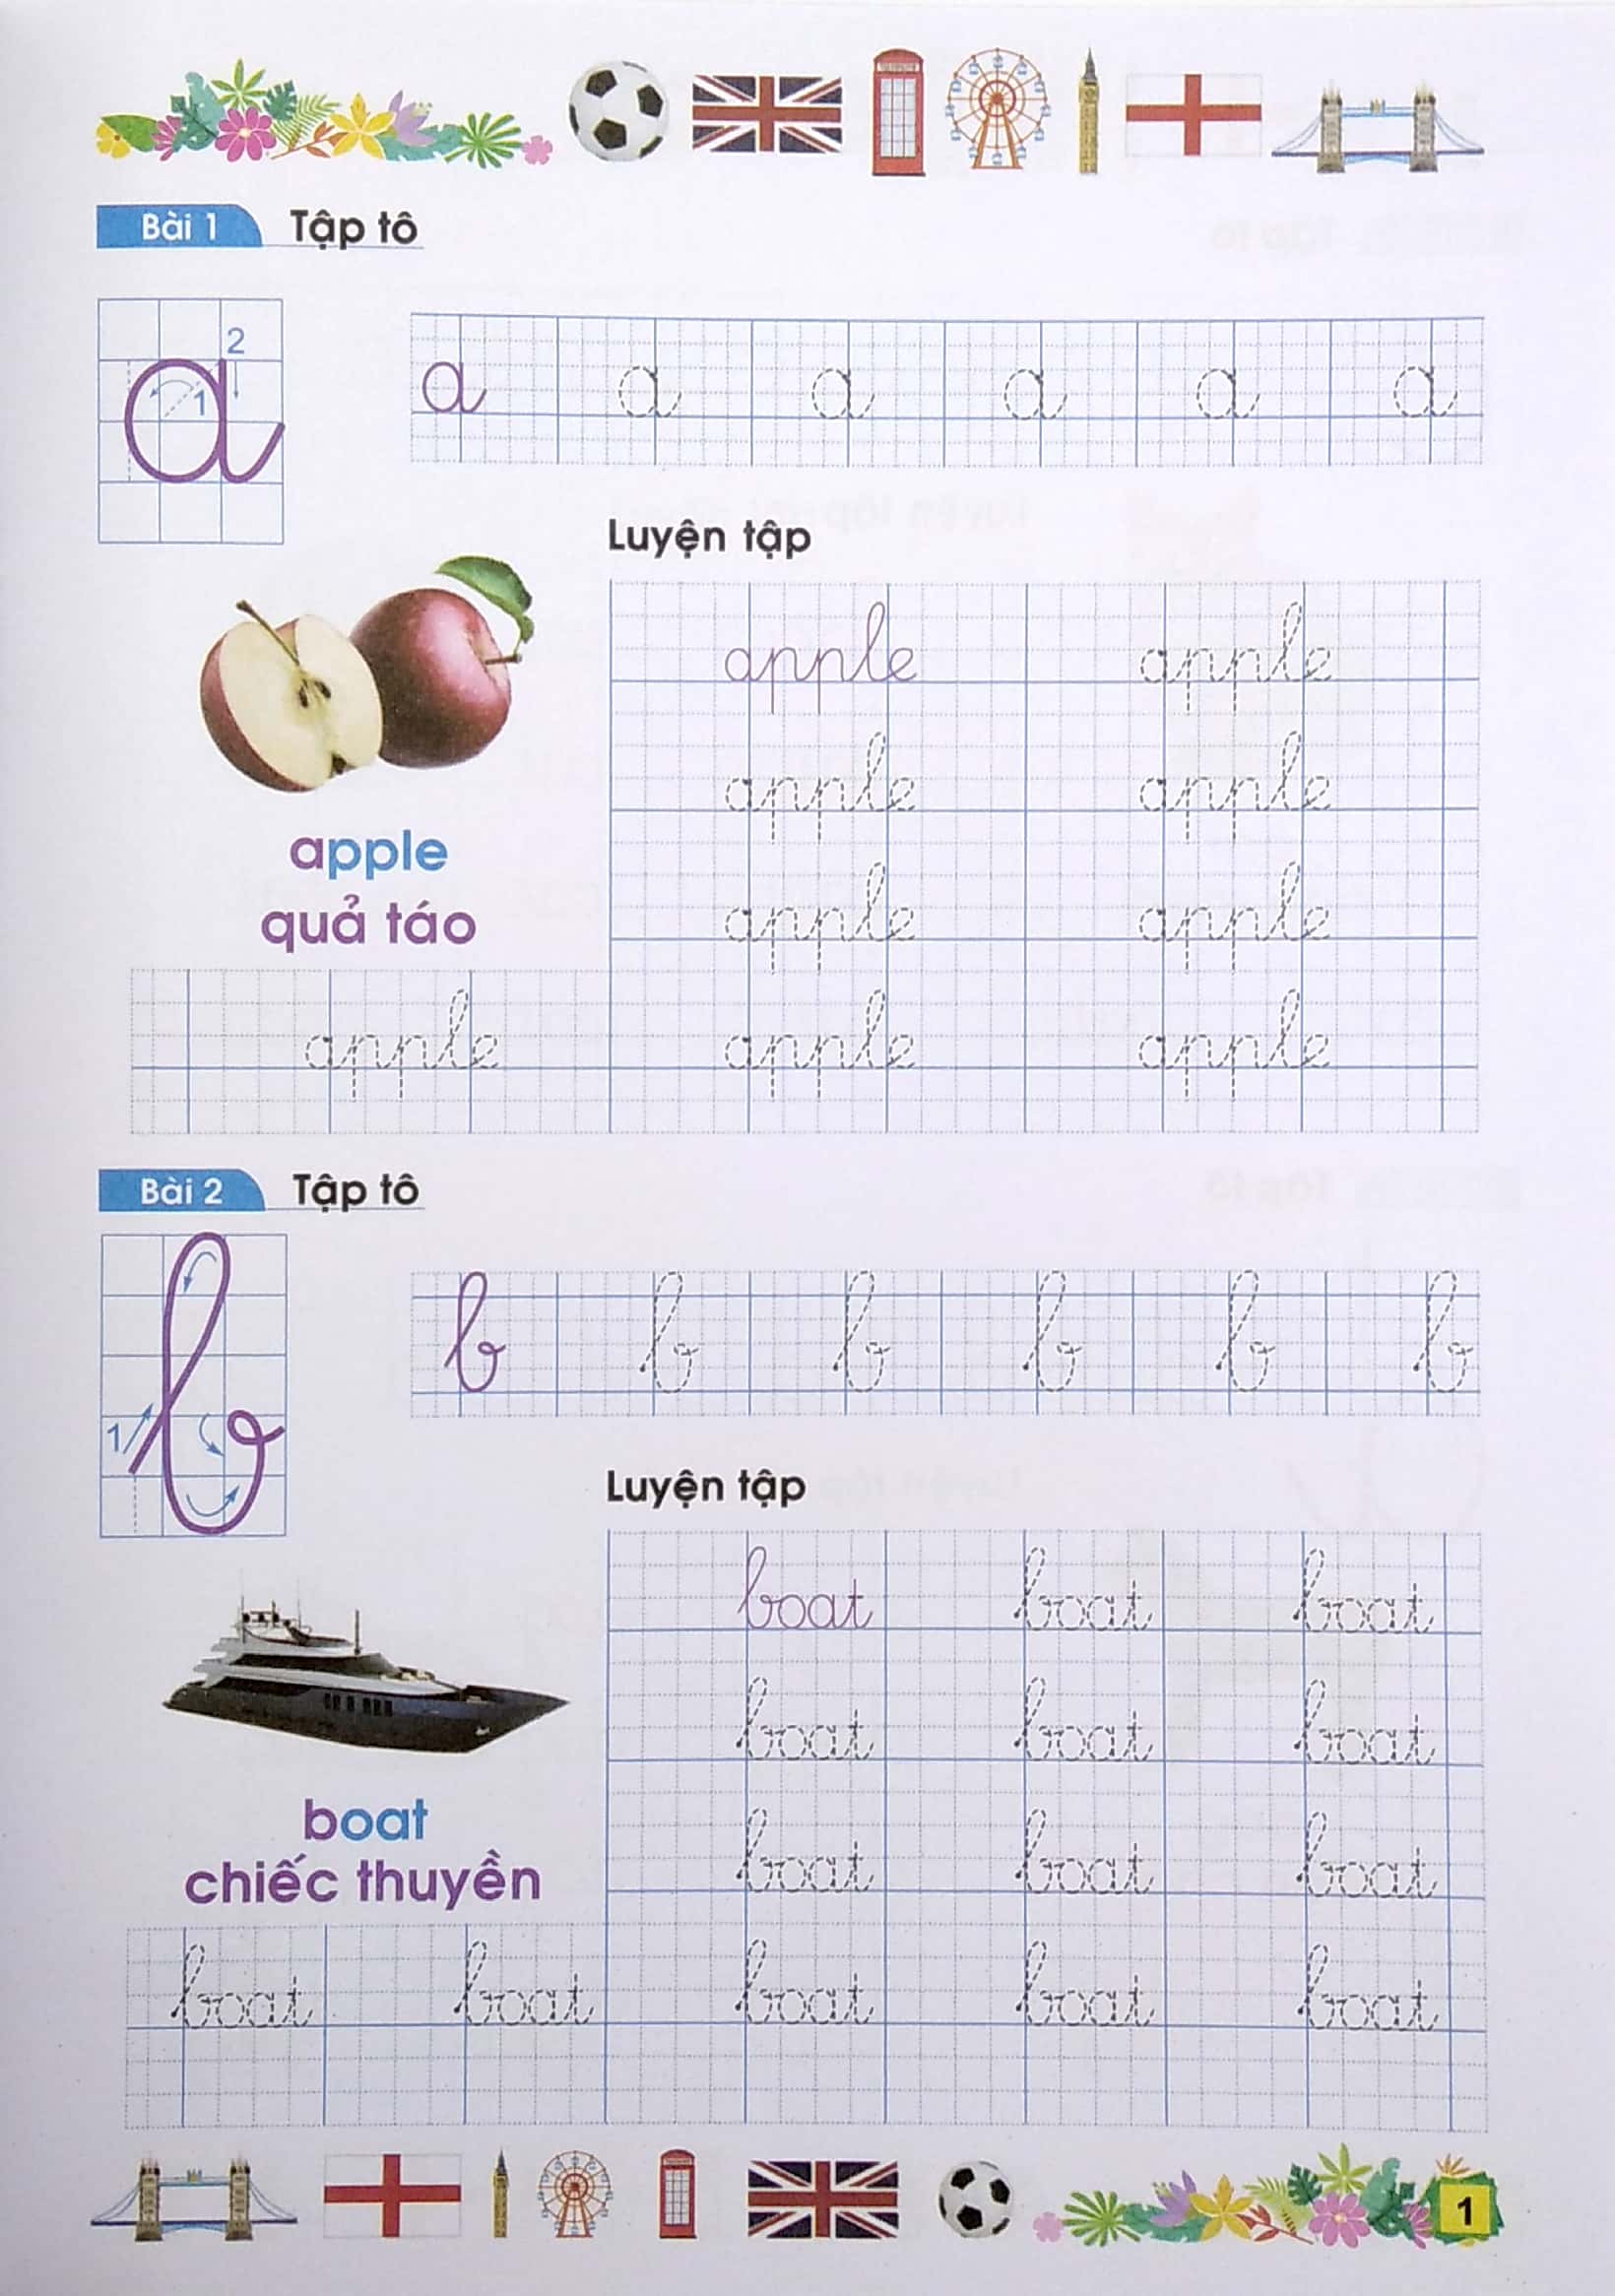 Bài 1 Tập tô
2
1
a a a a a a a
Luyện tập
apple apple
apple apple
apple
quả táo
apple apple
apple apple apple
Bài 2 Tập tô
1
b b b b b b b
Luyện tập
boat boat boat
boat boat boat
boat
chiếc thuyền
boat boat boat
boat boat boat boat boat
1